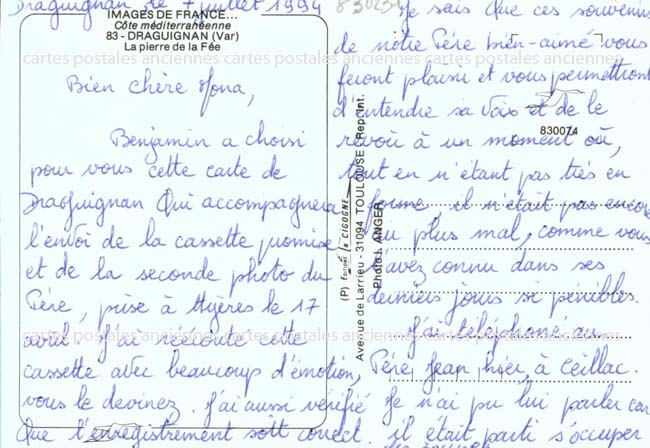 Draguignan le 7 juillet 1994
IMAGES DE FRANCE...
Côte méditerranéenne
83 - DRAGUIGNAN (Var)
La pierre de la Fée
cartes postales anciennes cartes postales anciennes cartes postales anciennes
Bien chère Mona,
Benjamin a choisi
pour vous cette carte de
Draguignan qui accompagnera
l'envoi de la cassette promise
et de la seconde photo du
Père, prise à Hyères le 17
avril. J'ai réécouté cette
cassette avec beaucoup d'émotion,
vous le devinez. J'ai aussi vérifié
que l'enregistrement soit correct.
(P) Editions "la CIGOGNE"
Avenue de Larrieu - 31094 TOULOUSE - Rep. Int.
Photo J. ANGER
830074
Je sais que ces souvenirs
de notre Père bien-aimé vous
feront plaisir et vous permettront
d'entendre sa voix et de le
revoir à un moment où,
tout en n'étant pas très en
forme il n'était pas encore
au plus mal, comme vous
avez connu dans ses
derniers jours si pénibles.
J'ai téléphoné au
Père Jean hier, à Ceillac.
Je n'ai pu lui parler car
il était parti s'occuper
cartes postales anciennes cartes postales anciennes cartes postales anciennes